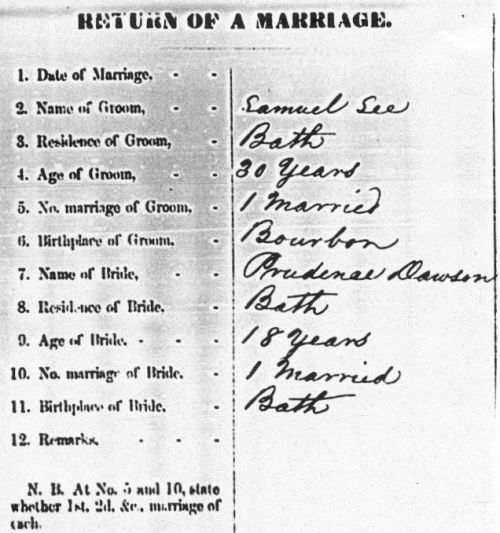 RETURN OF A MARRIAGE.
1. Date of Marriage, - -
2. Name of Groom, - - Samuel Lee
3. Residence of Groom, - Bath
4. Age of Groom, - - 30 Years
5. No. marriage of Groom, - 1 Married
6. Birthplace of Groom, - Bourbon
7. Name of Bride, - - Prudenae Dawson
8. Residence of Bride, - Bath
9. Age of Bride. - - - 18 Years
10. No. marriage of Bride, - 1 Married
11. Birthplace of Bride, - Bath
12. Remarks, - - -
N. B. At No. 5 and 10, state
whether 1st, 2d, &c., marriage of
each.